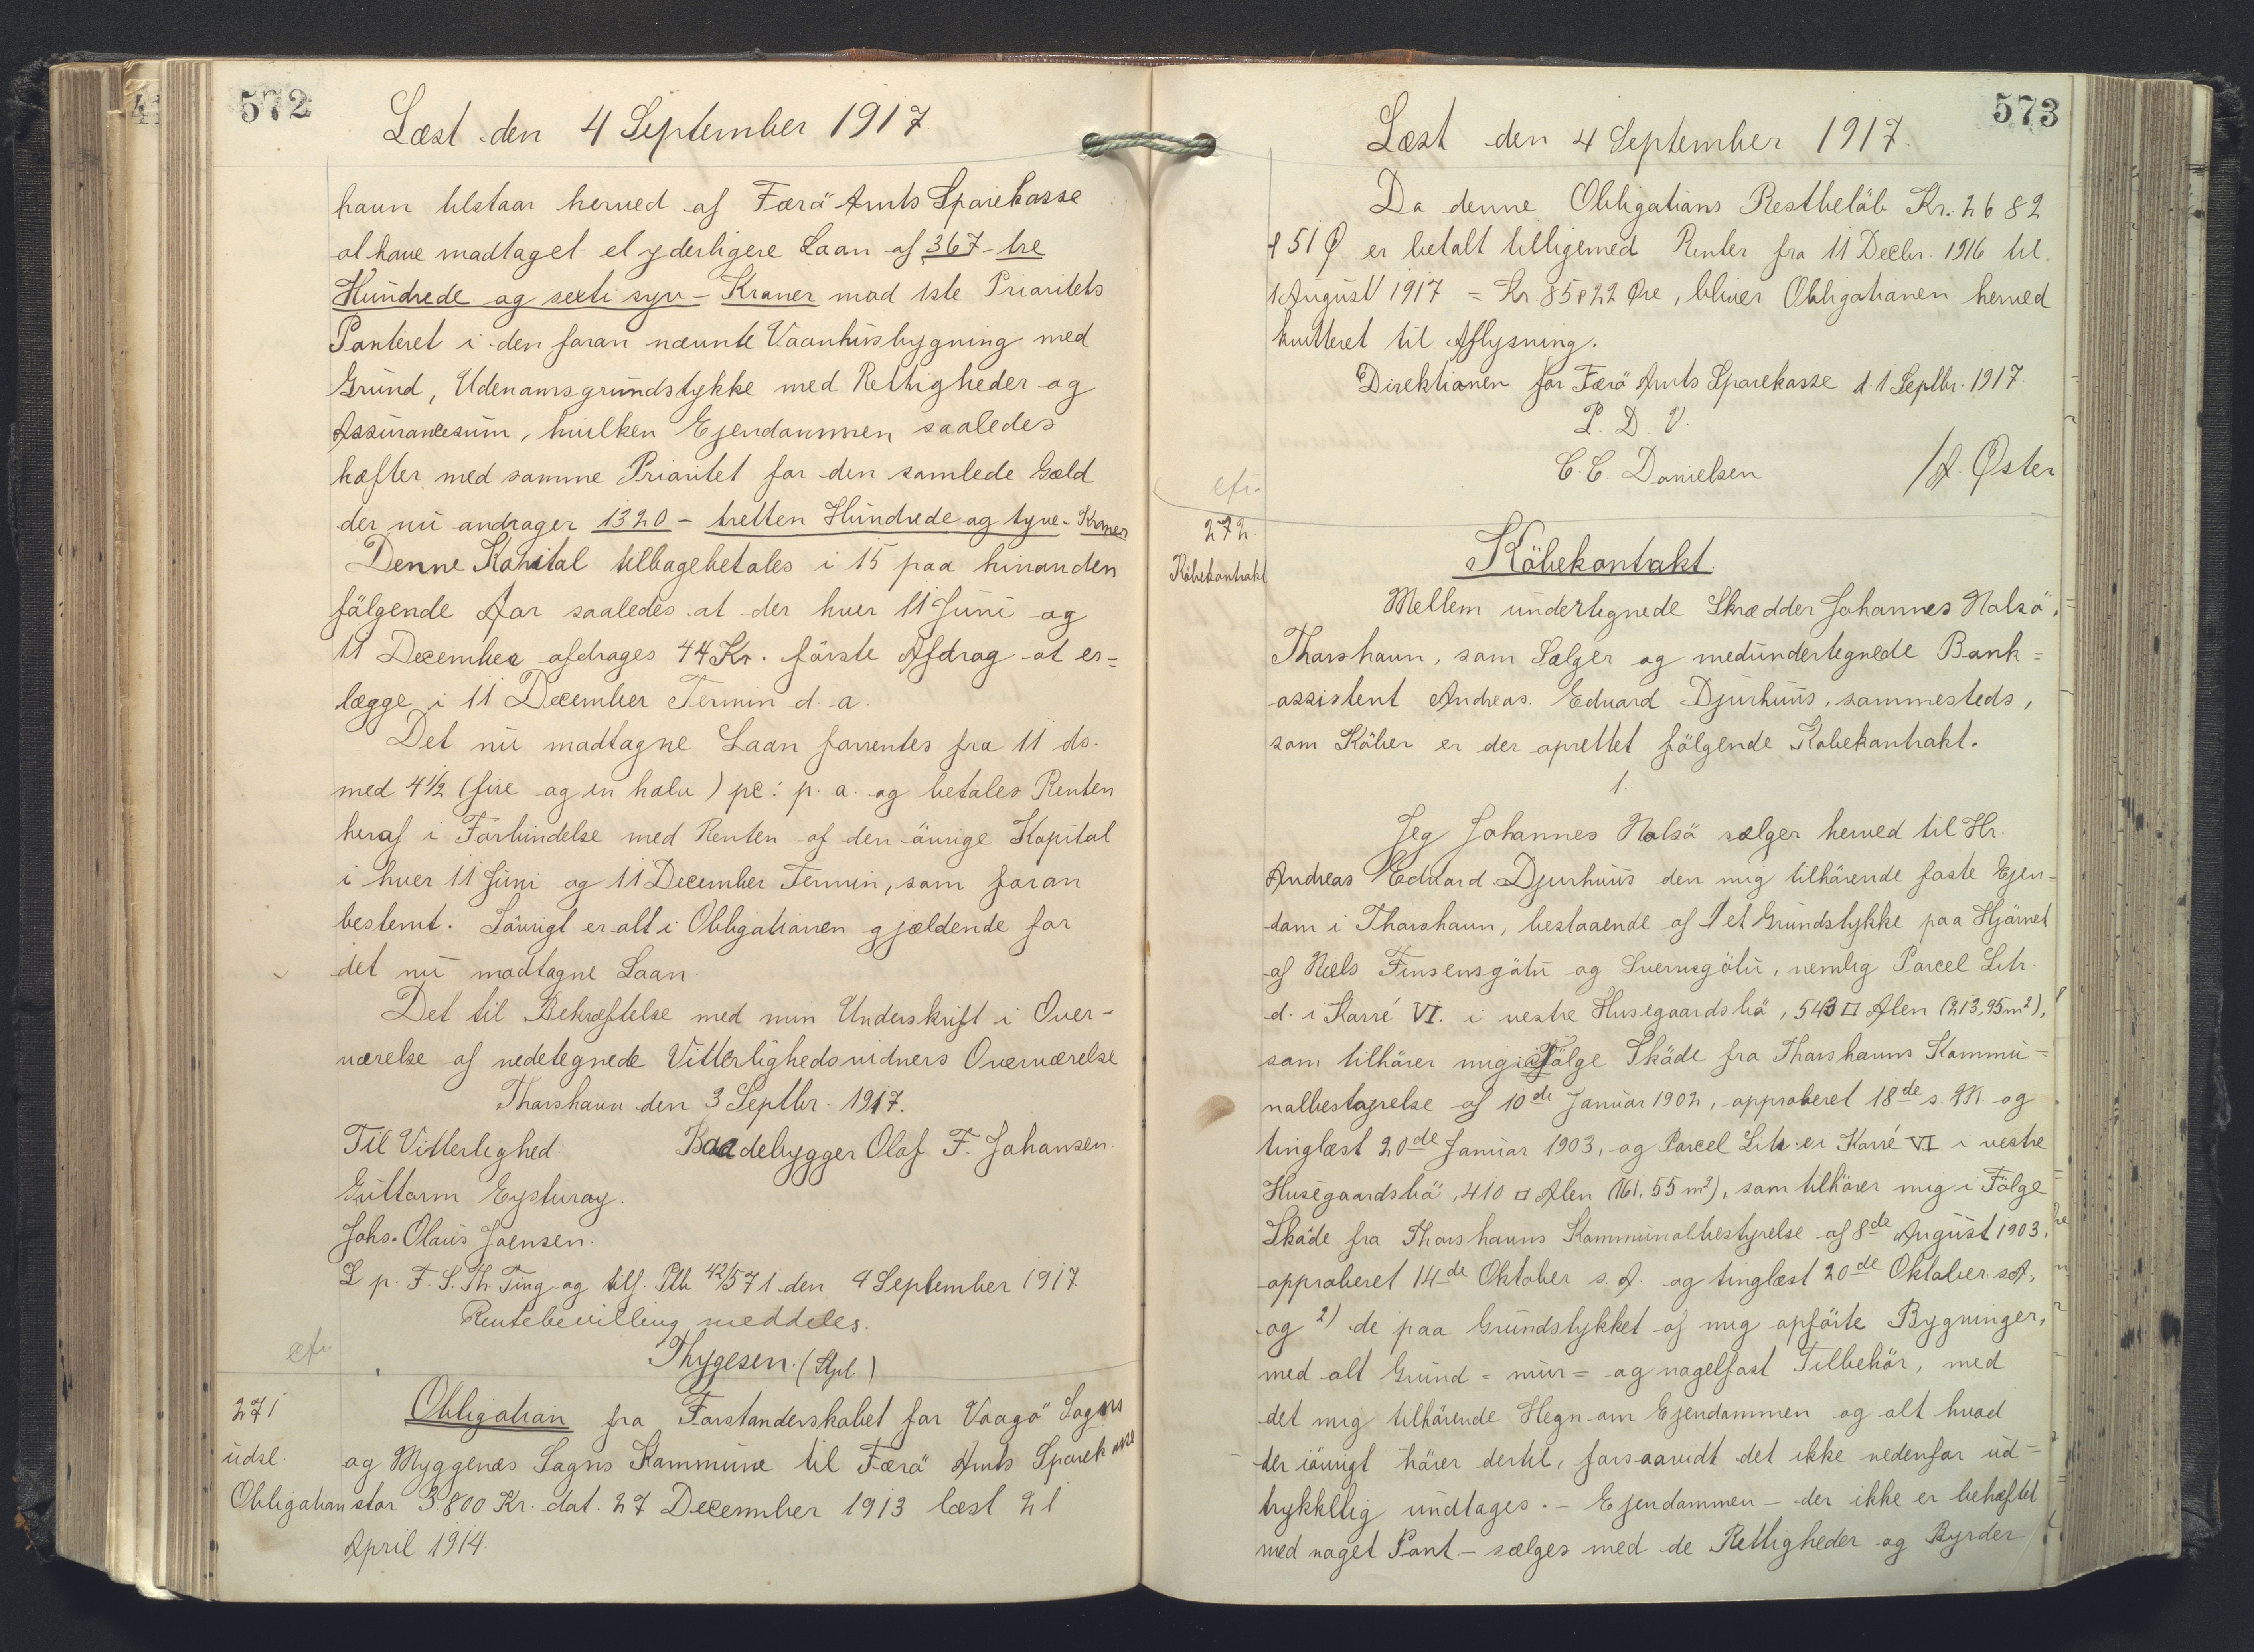 572
Læst den 4 September 1917
havn tilstaar herved af Færö Amts Sparekasse
at have modtaget et yderligere Laan af 367 - tre
Hundrede og sexti syv - Kroner mod 1ste Prioritets
Panteret i den foran nævnte Vaanhusbygning med
Grund, Udenamsgrundstykke med Rettigheder og
Assurancesum, hvilken Ejendommen saaledes
hæfter med samme Prioritet for den samlede Gæld
der nu andrager 1320 - tretten Hundrede og tyve - Kroner
Denne Kapital tilbagebetales i 15 paa hinanden
fölgende Aar saaledes at der hver 11 Juni og
11 December afdrages 44 Kr. förste Afdrag at er=
lægge i 11 December Termin d. a.
Det nu modtagne Laan forrentes fra 11 ds.
med 4½ (fire og en halv) pc: p. a. og betales Renten
heraf i Forbindelse med Renten af den övrige Kapital
i hver 11 Juni og 11 December Termin, som foran
bestemt. Iövrigt er alt i Obligationen gjældende for
det nu modtagne Laan.
Det til Bekræftelse med min Underskrift i Over-
værelse af nedetegnede Vitterlighedsvidners Overværelse
Thorshavn den 3 Septbr. 1917.
Til Vitterlighed: Baadebygger Olaf F. Johansen.
Guttorm Eysturoy.
Johs. Olaus Joensen.
L p. F. S. Th. Ting og tilf. Ptb 42/571 den 4 September 1917
Rentebevilling meddeles.
Thygesen. (Stpl)
cfr.
271 Obligation fra Forstanderskabet for Vaagö Sogns
udsl. og Myggenæs Sogns Kommune til Færö Amts Sparekasse
Obligation stor 3800 Kr. dat. 27 December 1913 læst 21
April 1914.
573
Læst den 4 September 1917.
Da denne Obligations Restbelöb Kr. 2682
& 51 Ø er betalt tilligemed Renter fra 11 Decbr. 1916 til
1 August 1917 = Kr. 85 & 22 Øre, bliver Obligationen herved
kvitteret til Aflysning.
Direktionen for Færö Amts Sparekasse d. 1 Septbr. 1917.
P. D. V.
C. C. Danielsen /A. Øster
cfr.
272.
Köbekontrakt
Köbekontrakt.
Mellem undertegnede Skrædder Johannes Nolsö,
Thorshavn, som Sælger og medundertegnede Bank=
assistent Andreas Edvard Djurhuus, sammesteds,
som Köber er der oprettet fölgende Köbekontrakt.
1.
Jeg Johannes Nolsö sælger herved til Hr.
Andreas Edvard Djurhuus den mig tilhörende faste Ejen=
dom i Thorshavn, bestaaende af 1 et Grundstykke paa Hjörnet
af Niels Finsensgötu og Sverrisgötu, nemlig Parcel Litr.
d. i Karré VI. i vestre Husegaardsbö, 543 □ Alen (213,95 m²),
som tilhörer mig i Fölge Sköde fra Thorshavns Kommu=
nalbestyrelse af 10de Januar 1902, approberet 18de s. M. og
tinglæst 20de Januar 1903, og Parcel Litr. e i Karré VI i vestre
Husegaardsbö, 410 □ Alen (161,55 m²), som tilhörer mig i Fölge
Sköde fra Thorshavns Kommunalbestyrelse af 8de August 1903,
approberet 14de Oktober s. A. og tinglæst 20de Oktober s. A,
og 2) de paa Grundstykket af mig opförte Bygninger,
med alt Grund= mur= og nagelfast Tilbehör, med
det mig tilhörende Hegn om Ejendommen og alt hvad
der iövrigt hörer dertil, forsaavidt det ikke nedenfor ud=
trykkelig undtages. - Ejendommen - der ikke er behæftet
med noget Pant - sælges med de Rettigheder og Byrder